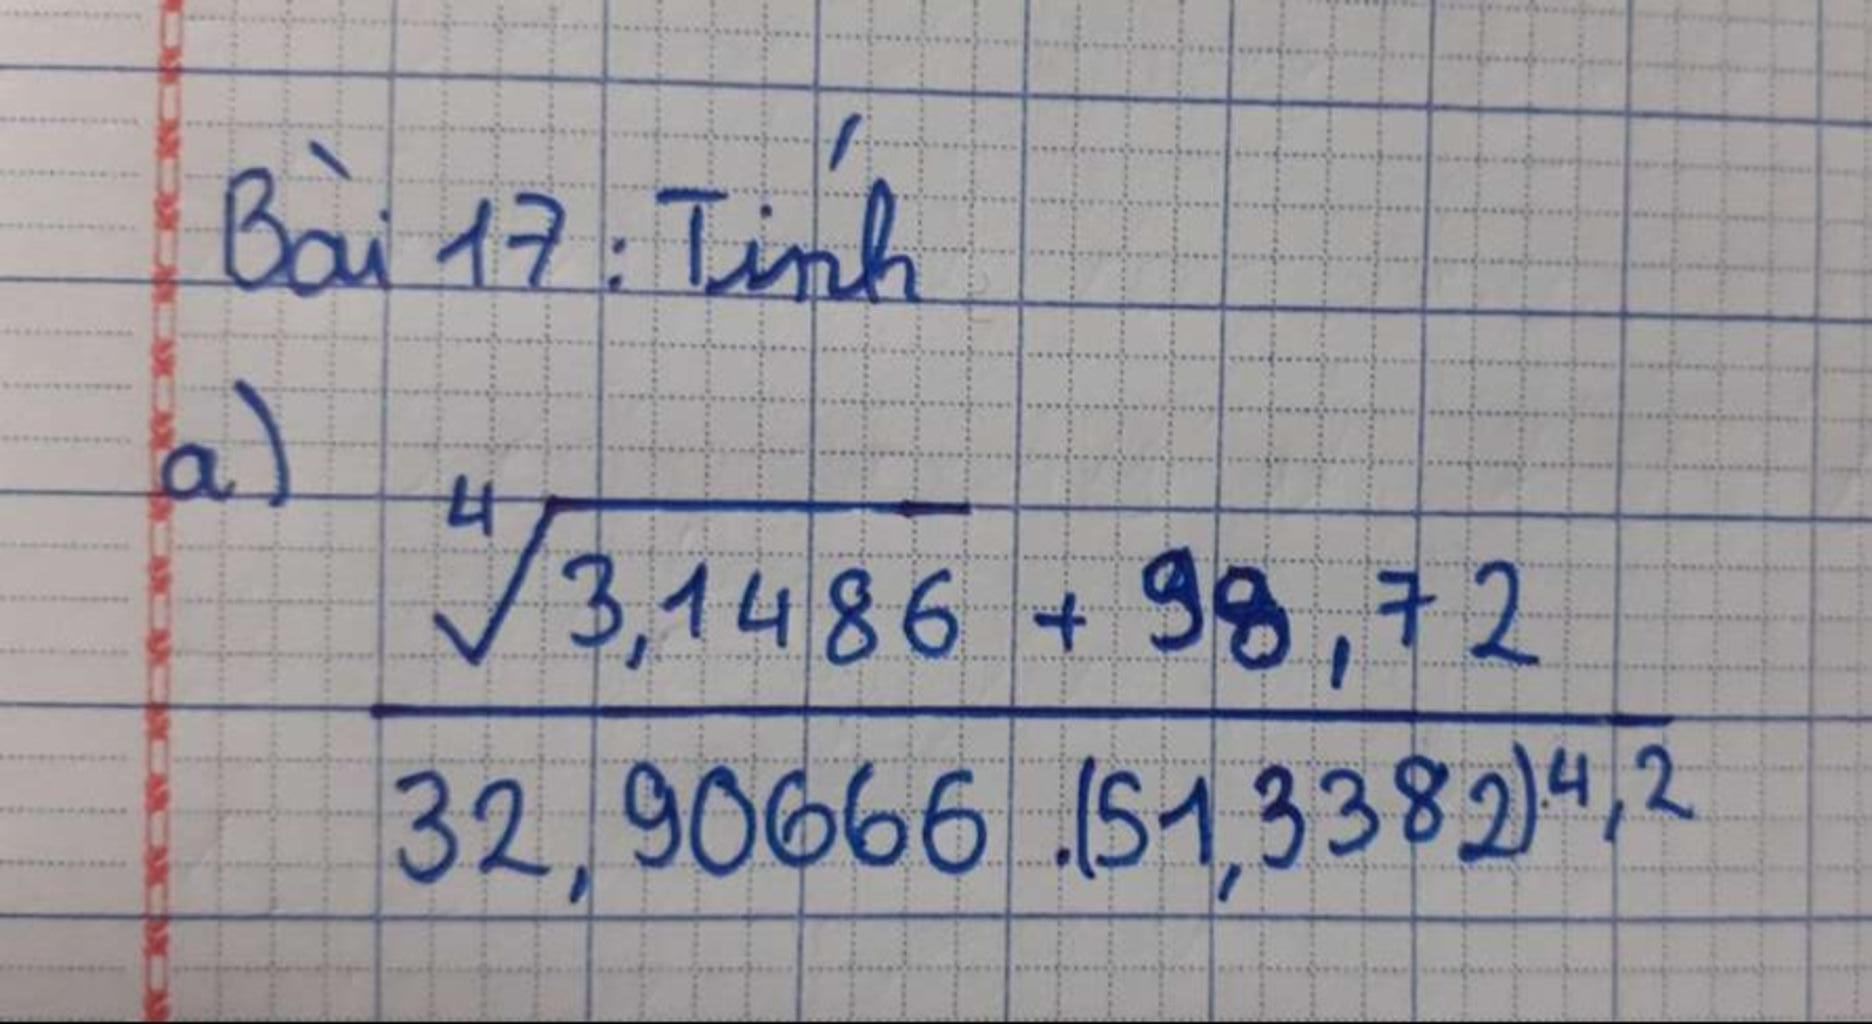 Bài 17 : Tính
a)
⁴√3,1486 + 98,72
32,90666 .(51,3382)^4,2